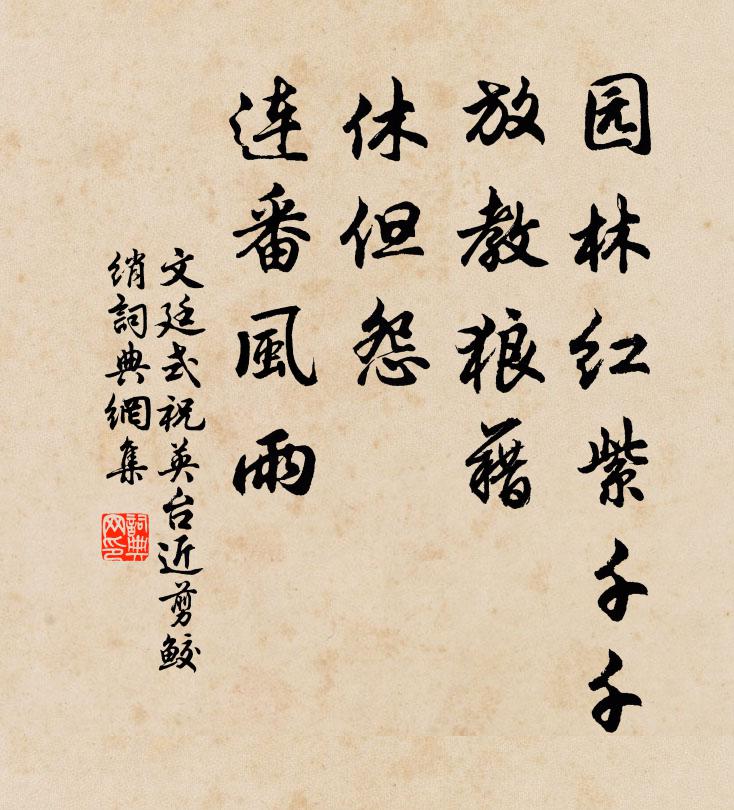 园林红紫千千
放教狼藉
休但怨
连番風雨
文廷式祝英台近剪鲛
绡詞典網集
詞典网印